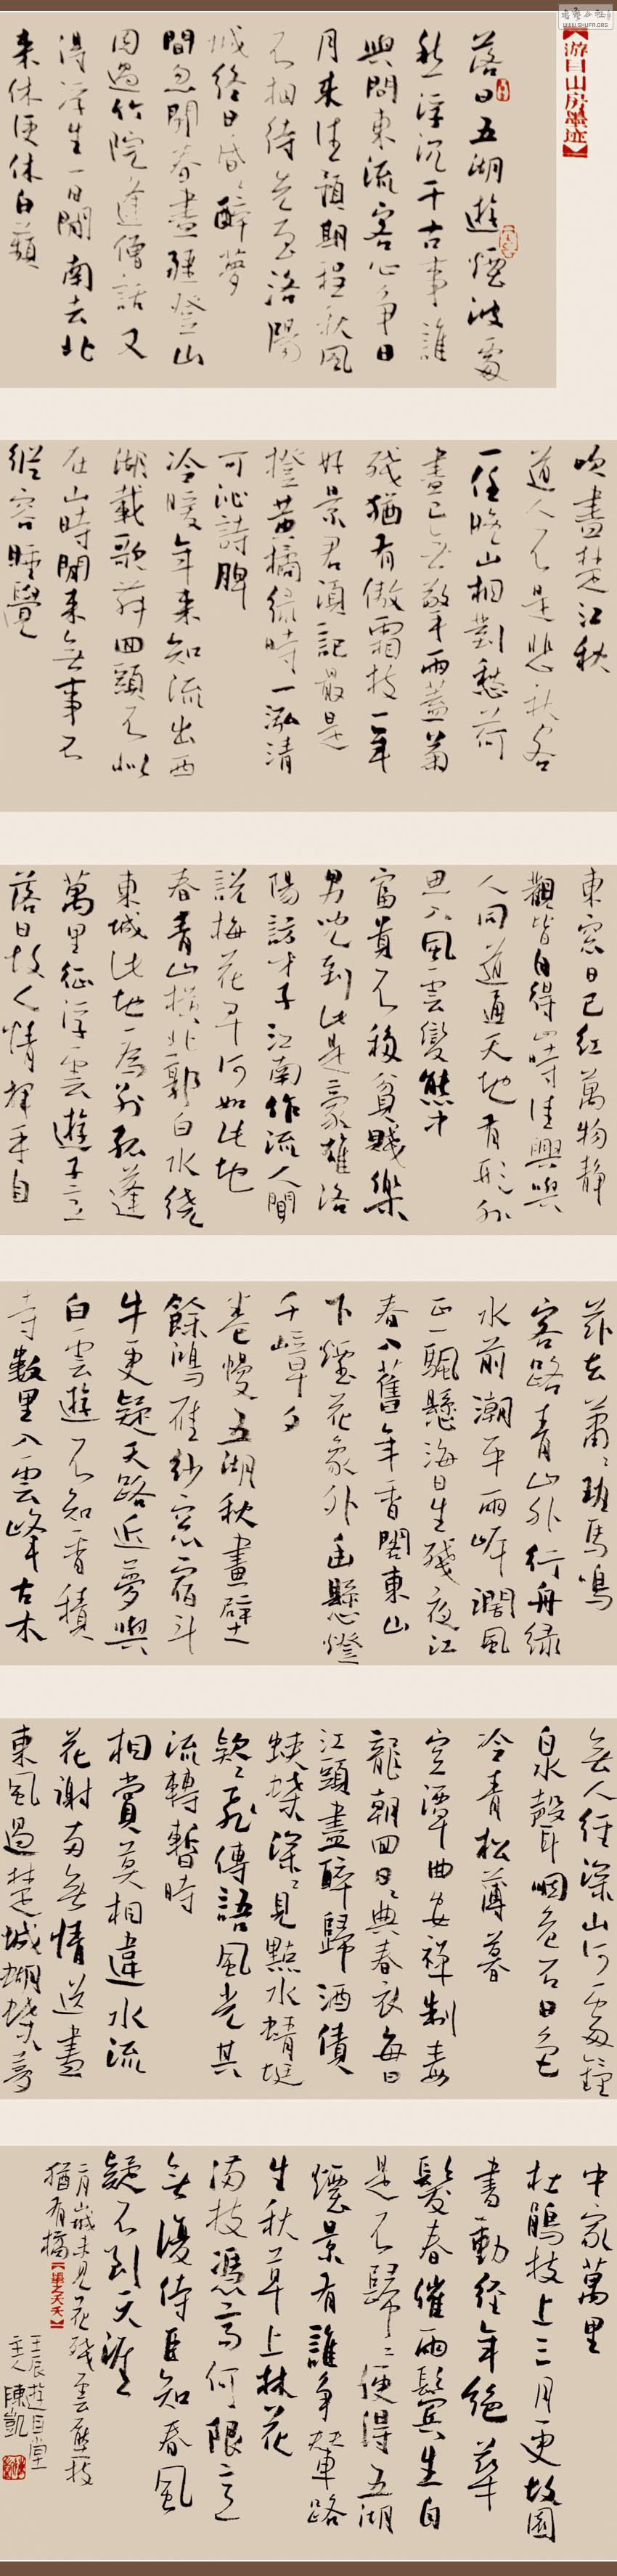 【游目山房墨迹】
落日五湖遊烟波處
愁浮沉千古事誰
與問東流客心争日
月来往預期程秋風
不相待先至洛陽
城终日昏昏醉夢
間忽聞春盡强登山
因過竹院逢僧話又
得浮生一日閒南去北
来休便休白蘋
吹盡楚江秋
道人不是悲秋客
一任晚山相對愁荷
盡已無擎雨蓋菊
残猶有傲霜枝一年
好景君須記最是
橙黄橘緑時一泓清
可沁詩脾
冷暖年来知流出西
湖載歌舞回頭不似
在山時閒来無事不
從容睡覺
東窓日已红萬物静
觀皆自得四時佳興與
人同道通天地有形外
思入風雲變態中
富貴不移貧賤樂
男兒到此是豪雄洛
陽訪才子江南作流人聞
說梅花早何如此地
春青山横北郭白水绕
東城此地一為别孤蓬
萬里征浮雲遊子意
落日故人情揮手自
兹去蕭蕭班馬鳴
客路青山外行舟緑
水前潮平两岸濶風
正一颿懸海日生残夜江
春入舊年香閣東山
下煙花象外幽懸燈
千嶂夕
卷幔五湖秋畫壁
餘鴻雁紗窓宿斗
牛更疑天路近夢與
白雲遊不知香積
寺數里入雲峰古木
無人徑深山何處鐘
泉聲咽危石日色
冷青松薄暮
空潭曲安禪制毒
龍朝回日日典春衣每日
江頭盡醉歸酒債
蛱蝶深深見點水蜻蜓
欵欵飛傳語風光共
流轉暫時
相賞莫相違水流
花謝两無情送盡
東風過楚城蝴蝶夢
中家萬里
杜鵑枝上三月更故園
書動經年絶華
髮春催两鬢生自
是不歸歸便得五湖
煙景有誰争輦路
生秋草上林花
满枝憑高何限意
無復侍臣知春風
疑不到天涯
二月山城未見花残雪壓枝
猶有橘
壬辰遊目堂
主人陳凱
WWW.SHUFA.ORG